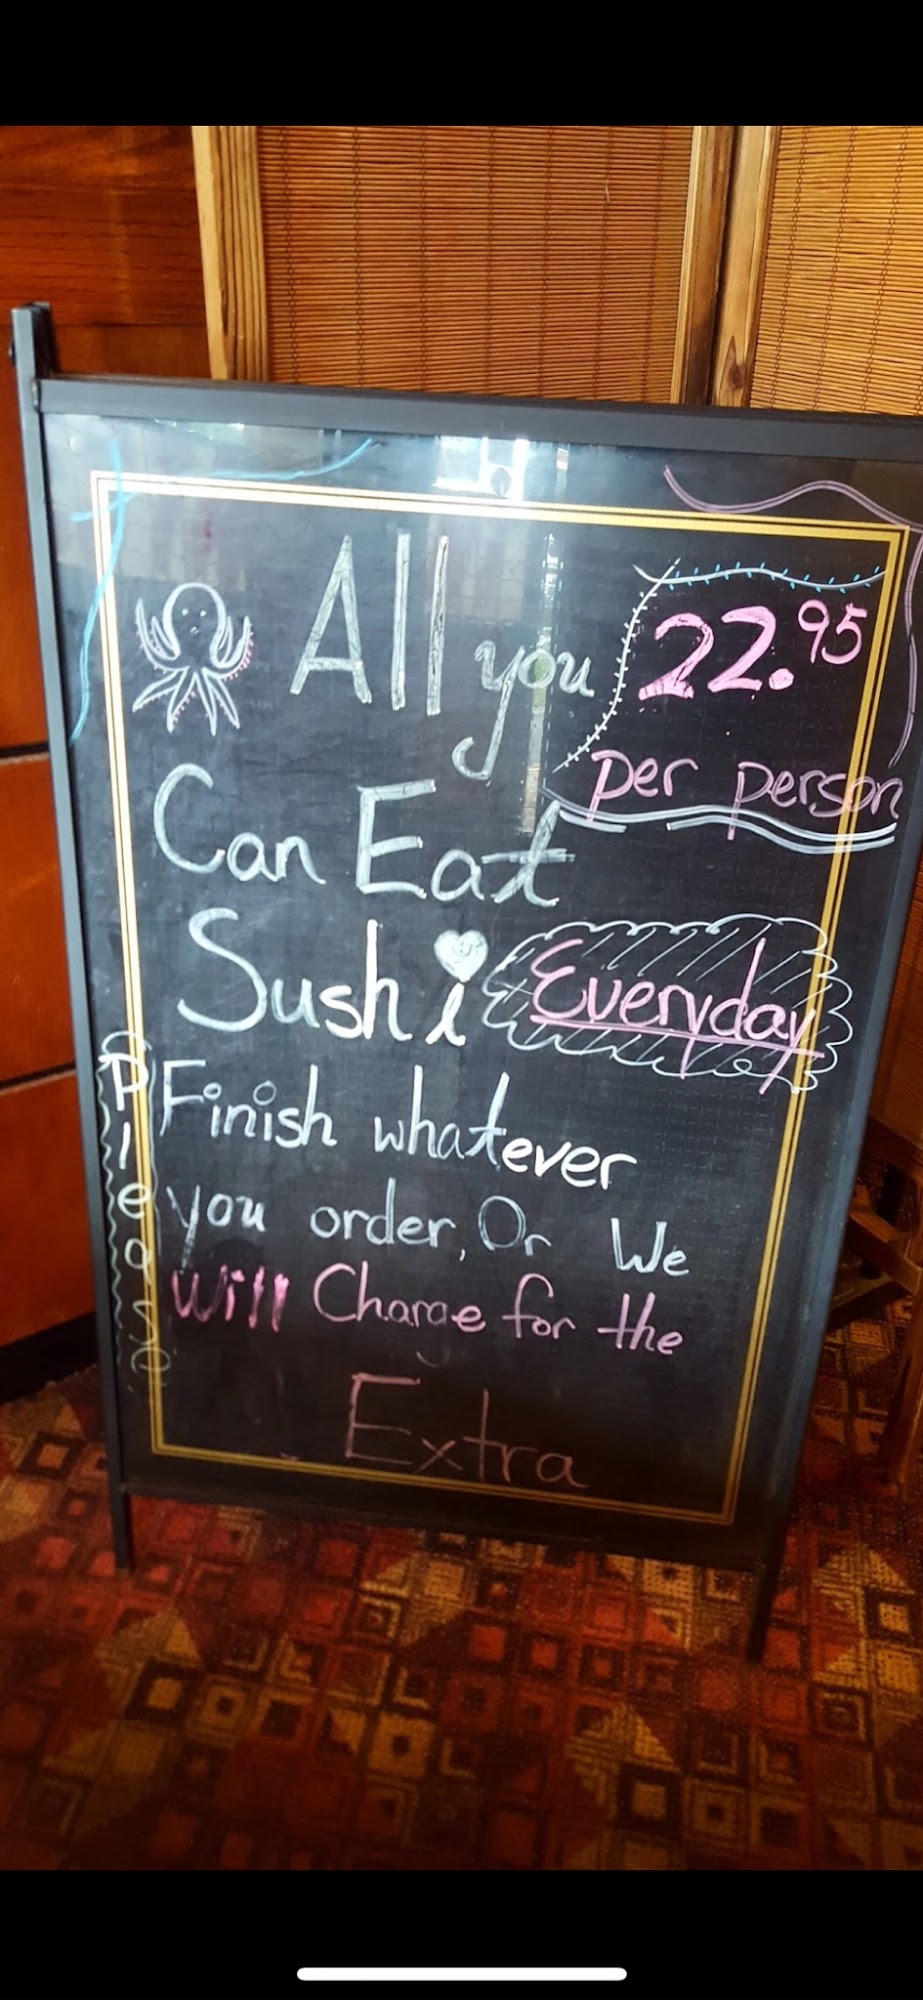 All you
22.95
per person
Can Eat
Sushi
Everyday
Please
Finish whatever
you order, Or We
Will Charge for the
Extra